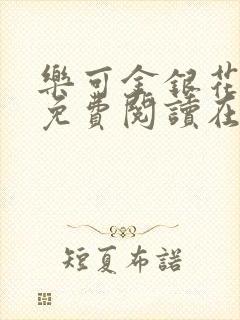 樂可金銀花
免費閱讀在
短夏布諾